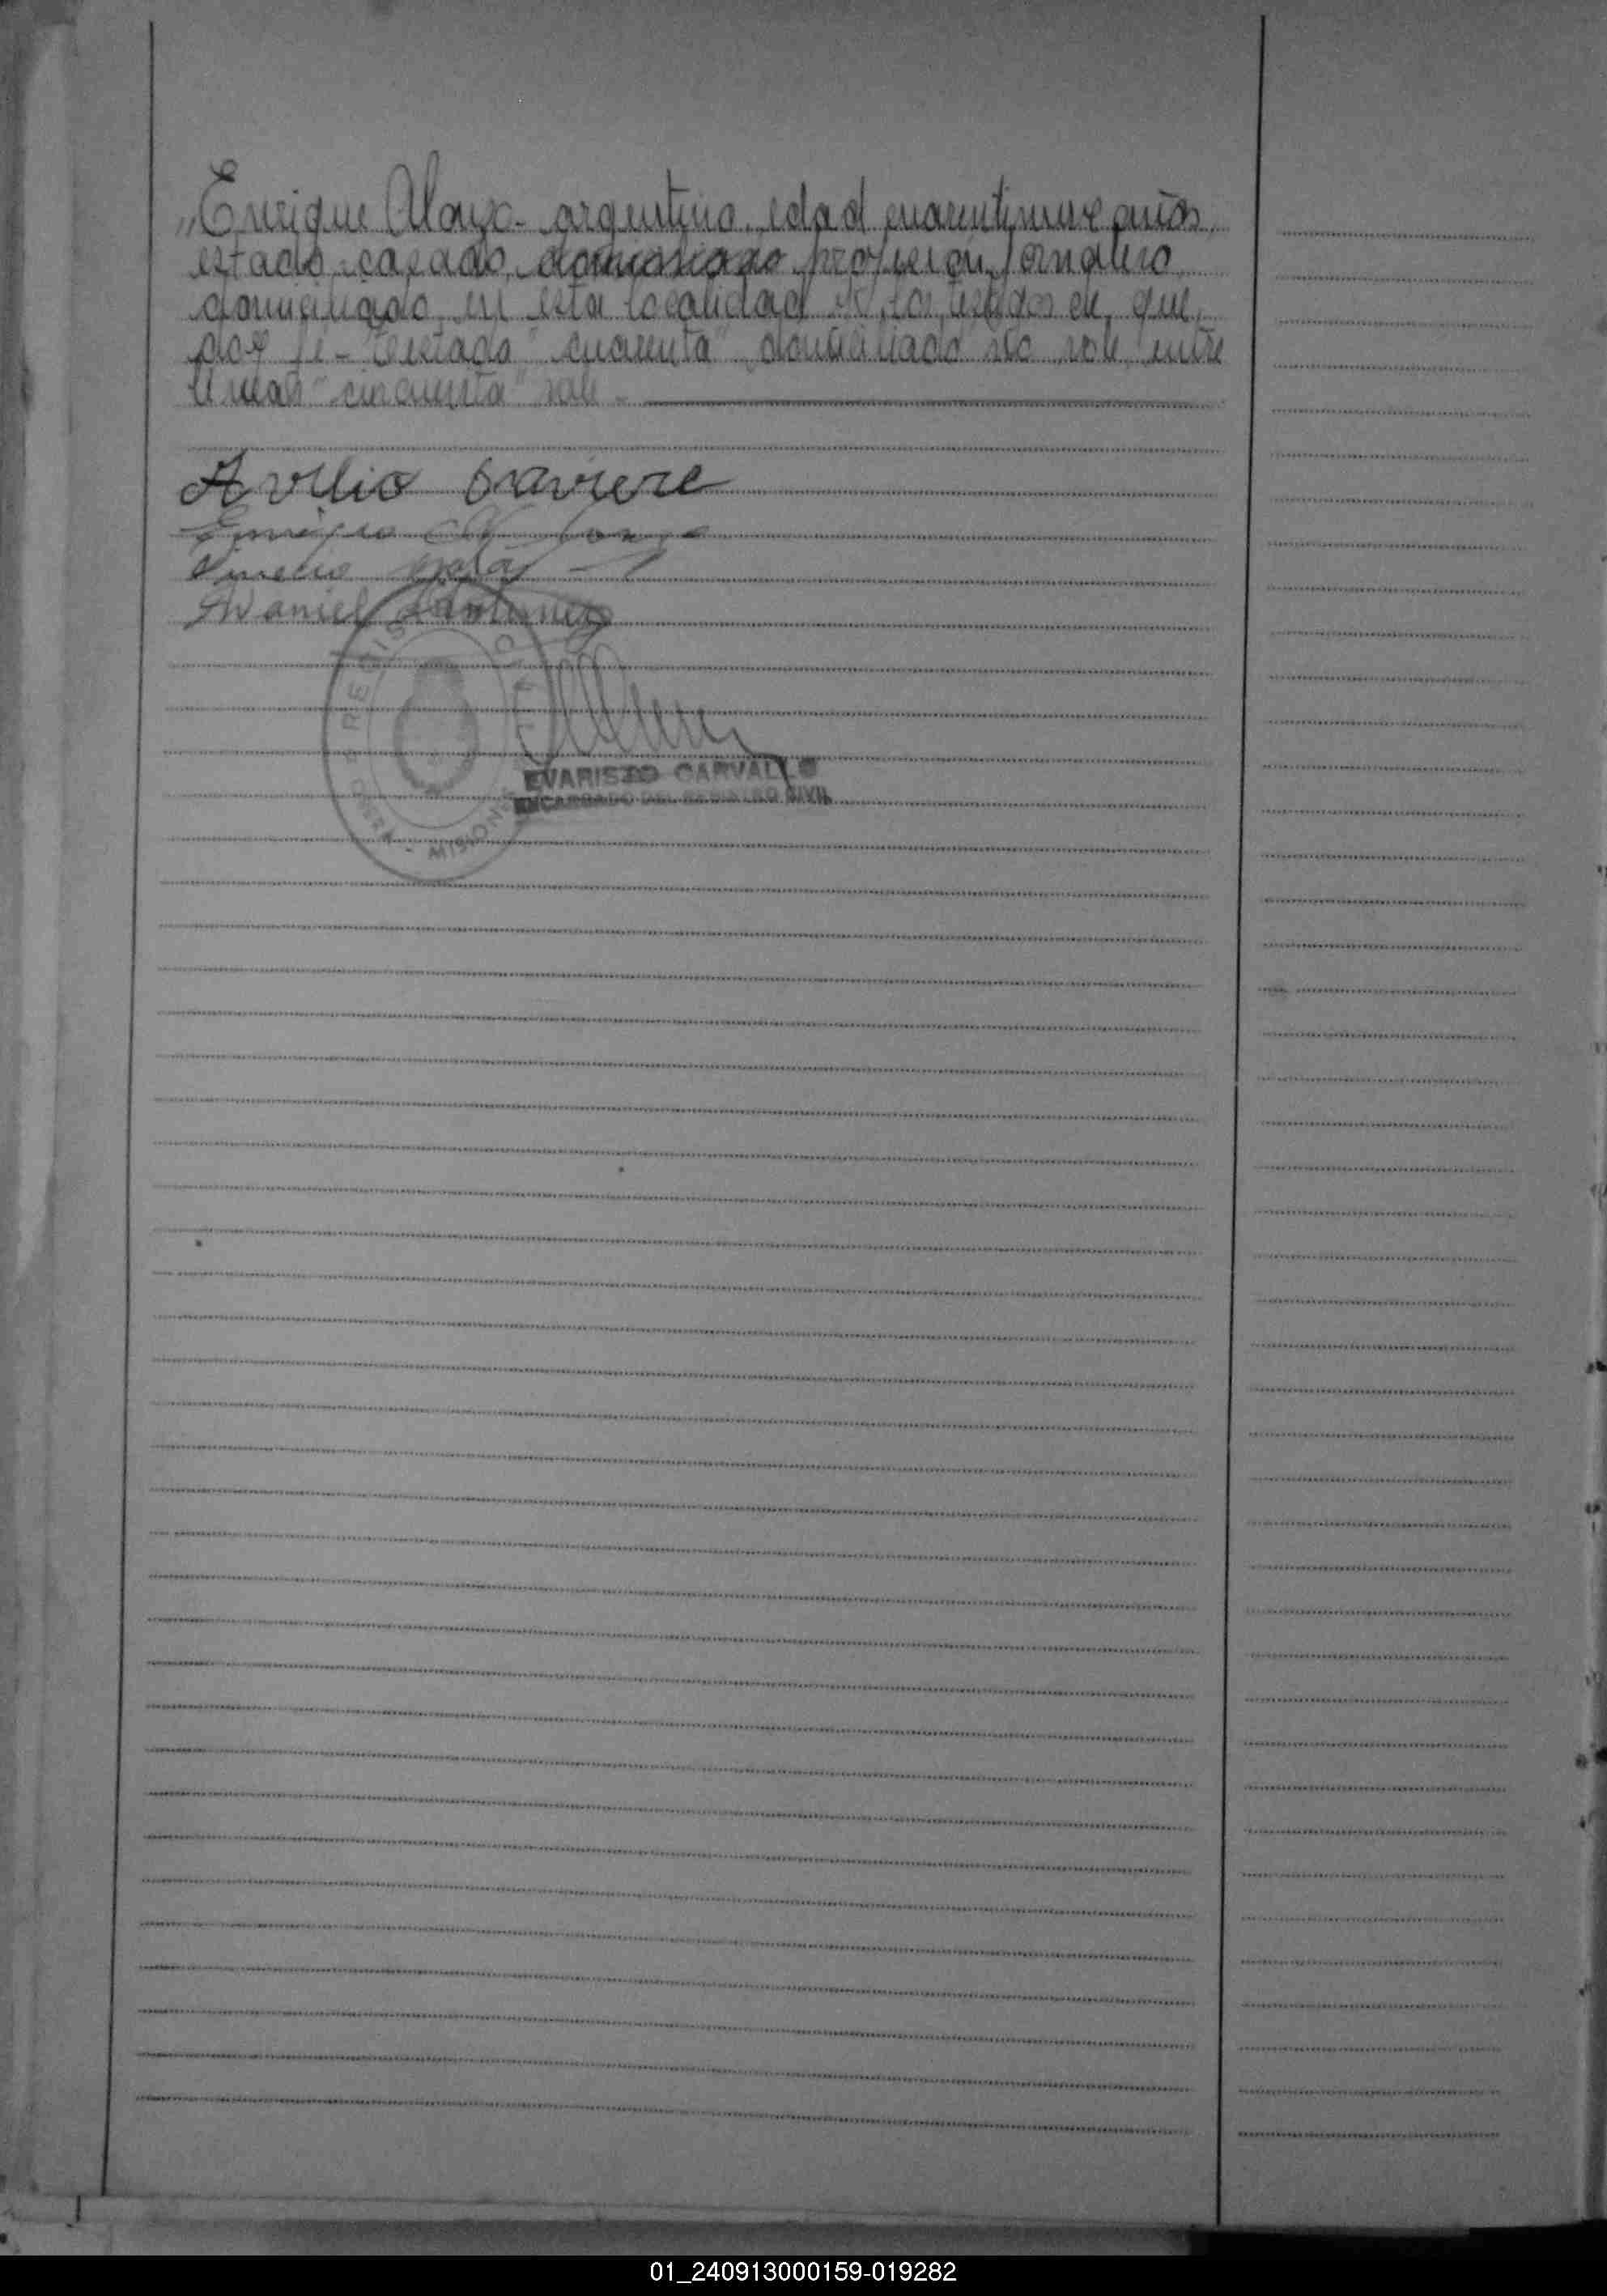 Enrique Alonzo - argentino, edad cuarentinueve años,
estado casado, domiciliado profesión jornalero
domiciliado en esta localidad los testigos de que
doy fe - Testado "cuarenta" domiciliado no vale entre
lineas "cincuenta" vale -
Avelio
Enrique Alonzo
Daniel
REGISTRO
OBERA - MISIONES
EVARISTO CARVALLO
ENCARGADO DEL REGISTRO CIVIL
01_240913000159-019282